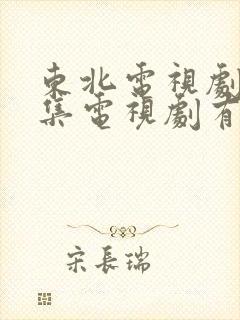 東北電視劇
集電視劇有
宋長瑞